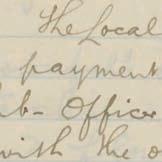 the Local
payment
ub- Officer
with the o